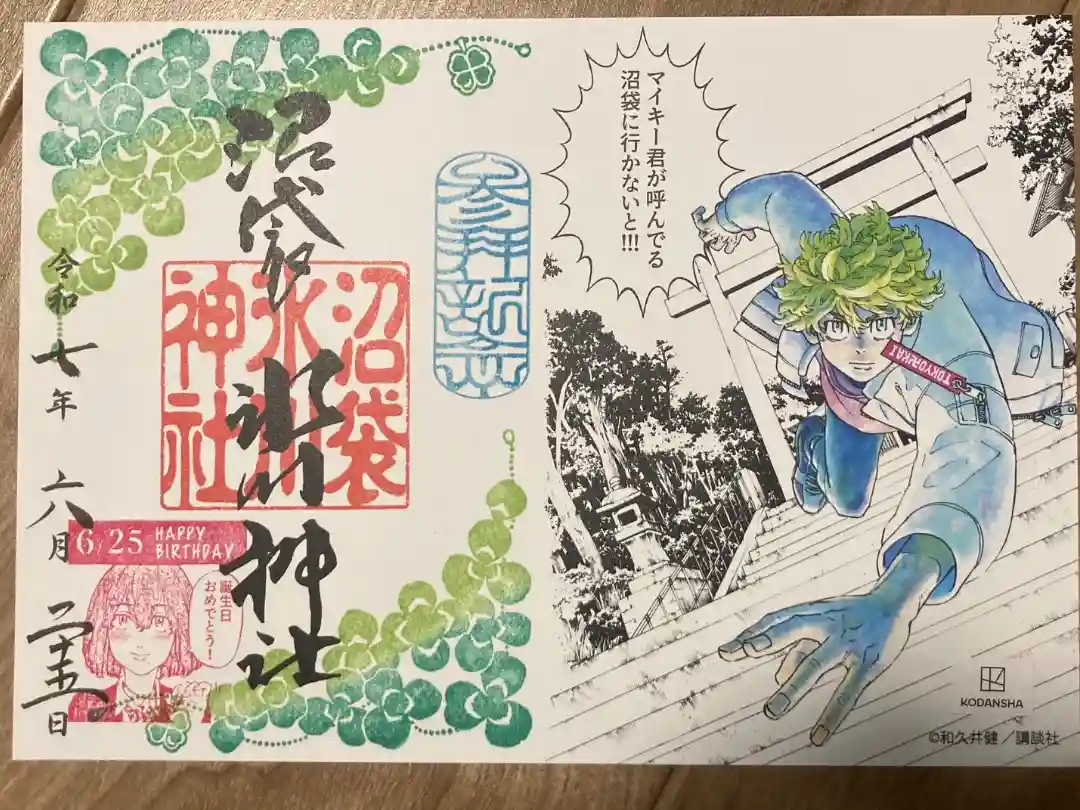 マイキー君が呼んでる
沼袋に行かないと!!!
TOKYO卍KAI
KODANSHA
©和久井健／講談社
参拝記念
沼袋
氷川
神社
沼袋 氷川神社
令和七年 六月 二十五日
6/25 HAPPY
BIRTHDAY
誕生日
おめでとう！